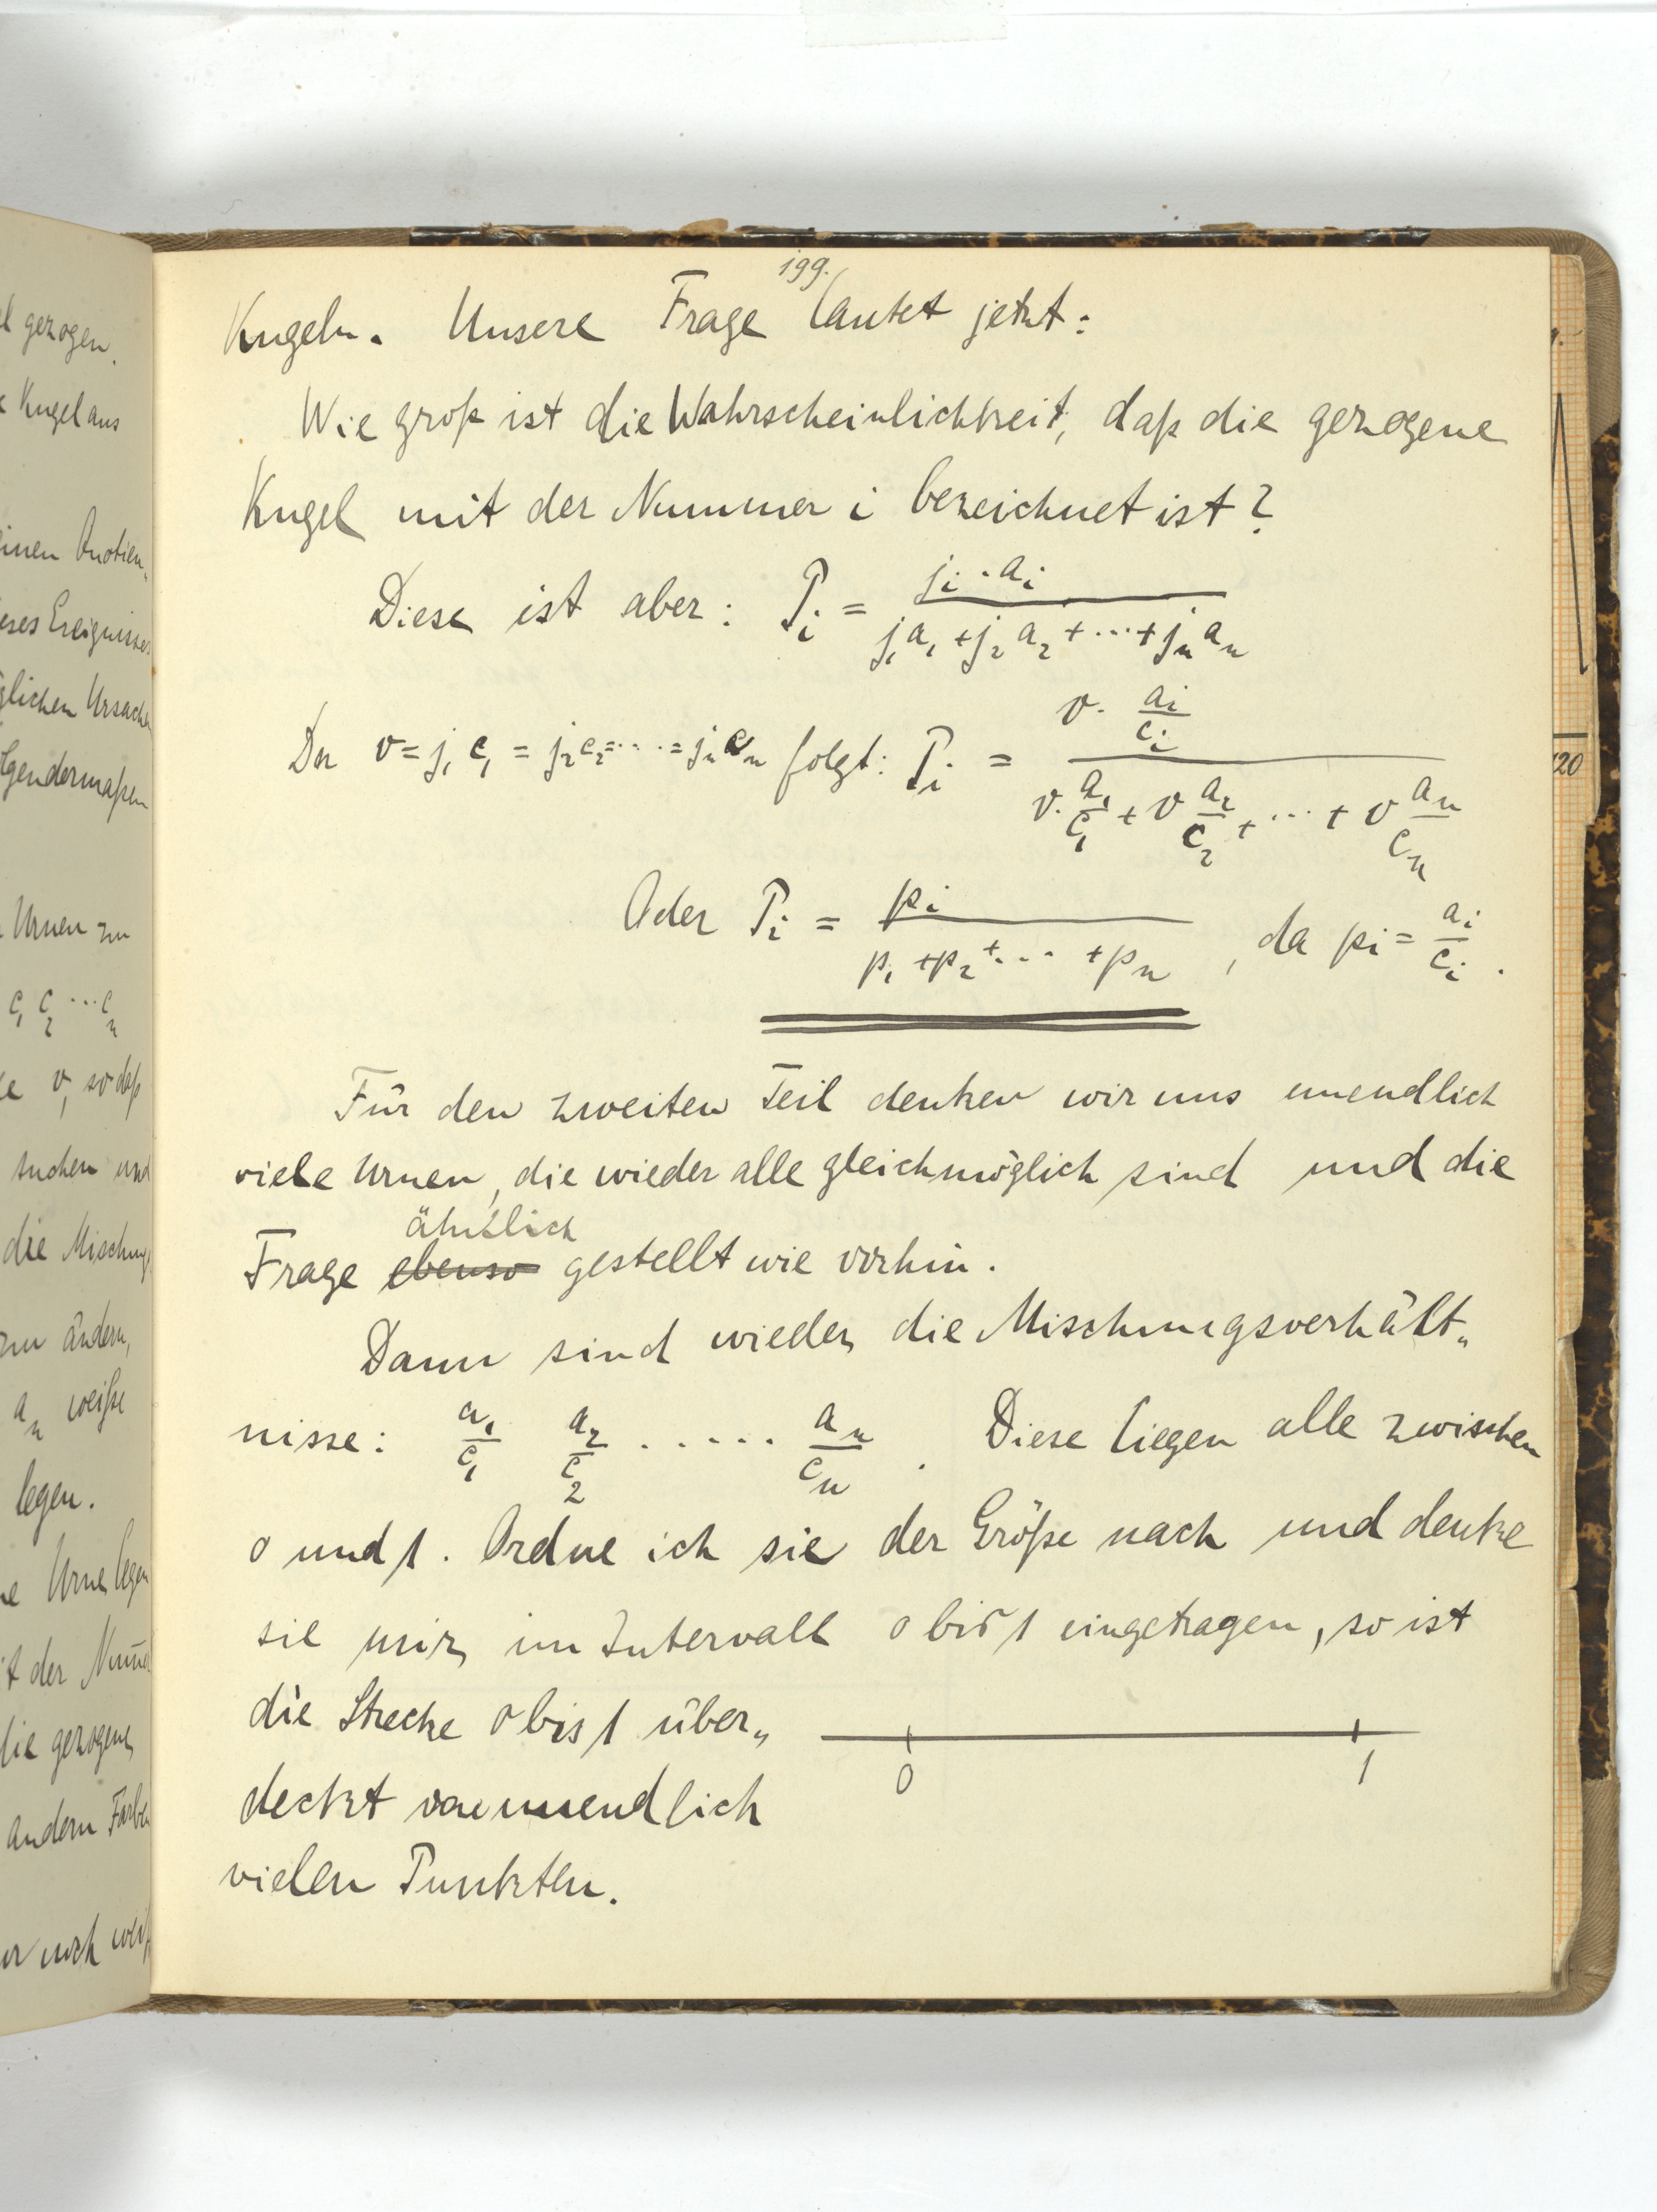 l gezogen.
Kugel aus
inen Quotien-
eses Ereignisses
glichen Ursachen
lgendermaßen
Urnen zu
c₁ c₂ ... cₙ
v, so daß
suchen und
die Mischung
zu ändern,
aₙ weiße
legen.
e Urne legen
t der Num̄e
die gezogene
andern Farbe
noch
199.
Kugeln. Unsere Frage lautet jetzt:
Wie groß ist die Wahrscheinlichkeit, daß die gezogene
Kugel mit der Nummer i bezeichnet ist?
Diese ist aber: Pᵢ = jᵢ · aᵢ / (j₁a₁ + j₂a₂ + ... + jₙaₙ)
Da v = j₁c₁ = j₂c₂ = ... = jₙcₙ folgt: Pᵢ = v · aᵢ/cᵢ / (v · a₁/c₁ + v a₂/c₂ + ... + v aₙ/cₙ)
Oder Pᵢ = pᵢ / (p₁ + p₂ + ... + pₙ), da pᵢ = aᵢ/cᵢ.
Für den zweiten Teil denken wir uns unendlich
viele Urnen, die wieder alle gleichmöglich sind und die
ähnlich
Frage ebenso gestellt wie vorhin.
Dann sind wieder die Mischungsverhält-
nisse: a₁/c₁ a₂/c₂ ...... aₙ/cₙ. Diese liegen alle zwischen
0 und 1. Ordne ich sie der Größe nach und denke
sie mir im Intervall 0 bis 1 eingetragen, so ist
die Strecke 0 bis 1 über-
deckt von unendlich
vielen Punkten.
0 1
20